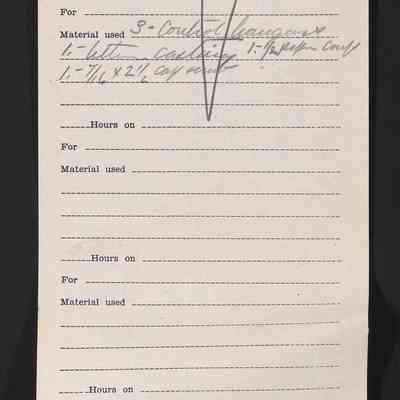 For
Material used 3 - Control hangers
1 - casting 1 - 1/2
1 - 7/16 x 2 1/2 cap
Hours on
For
Material used
Hours on
For
Material used
Hours on